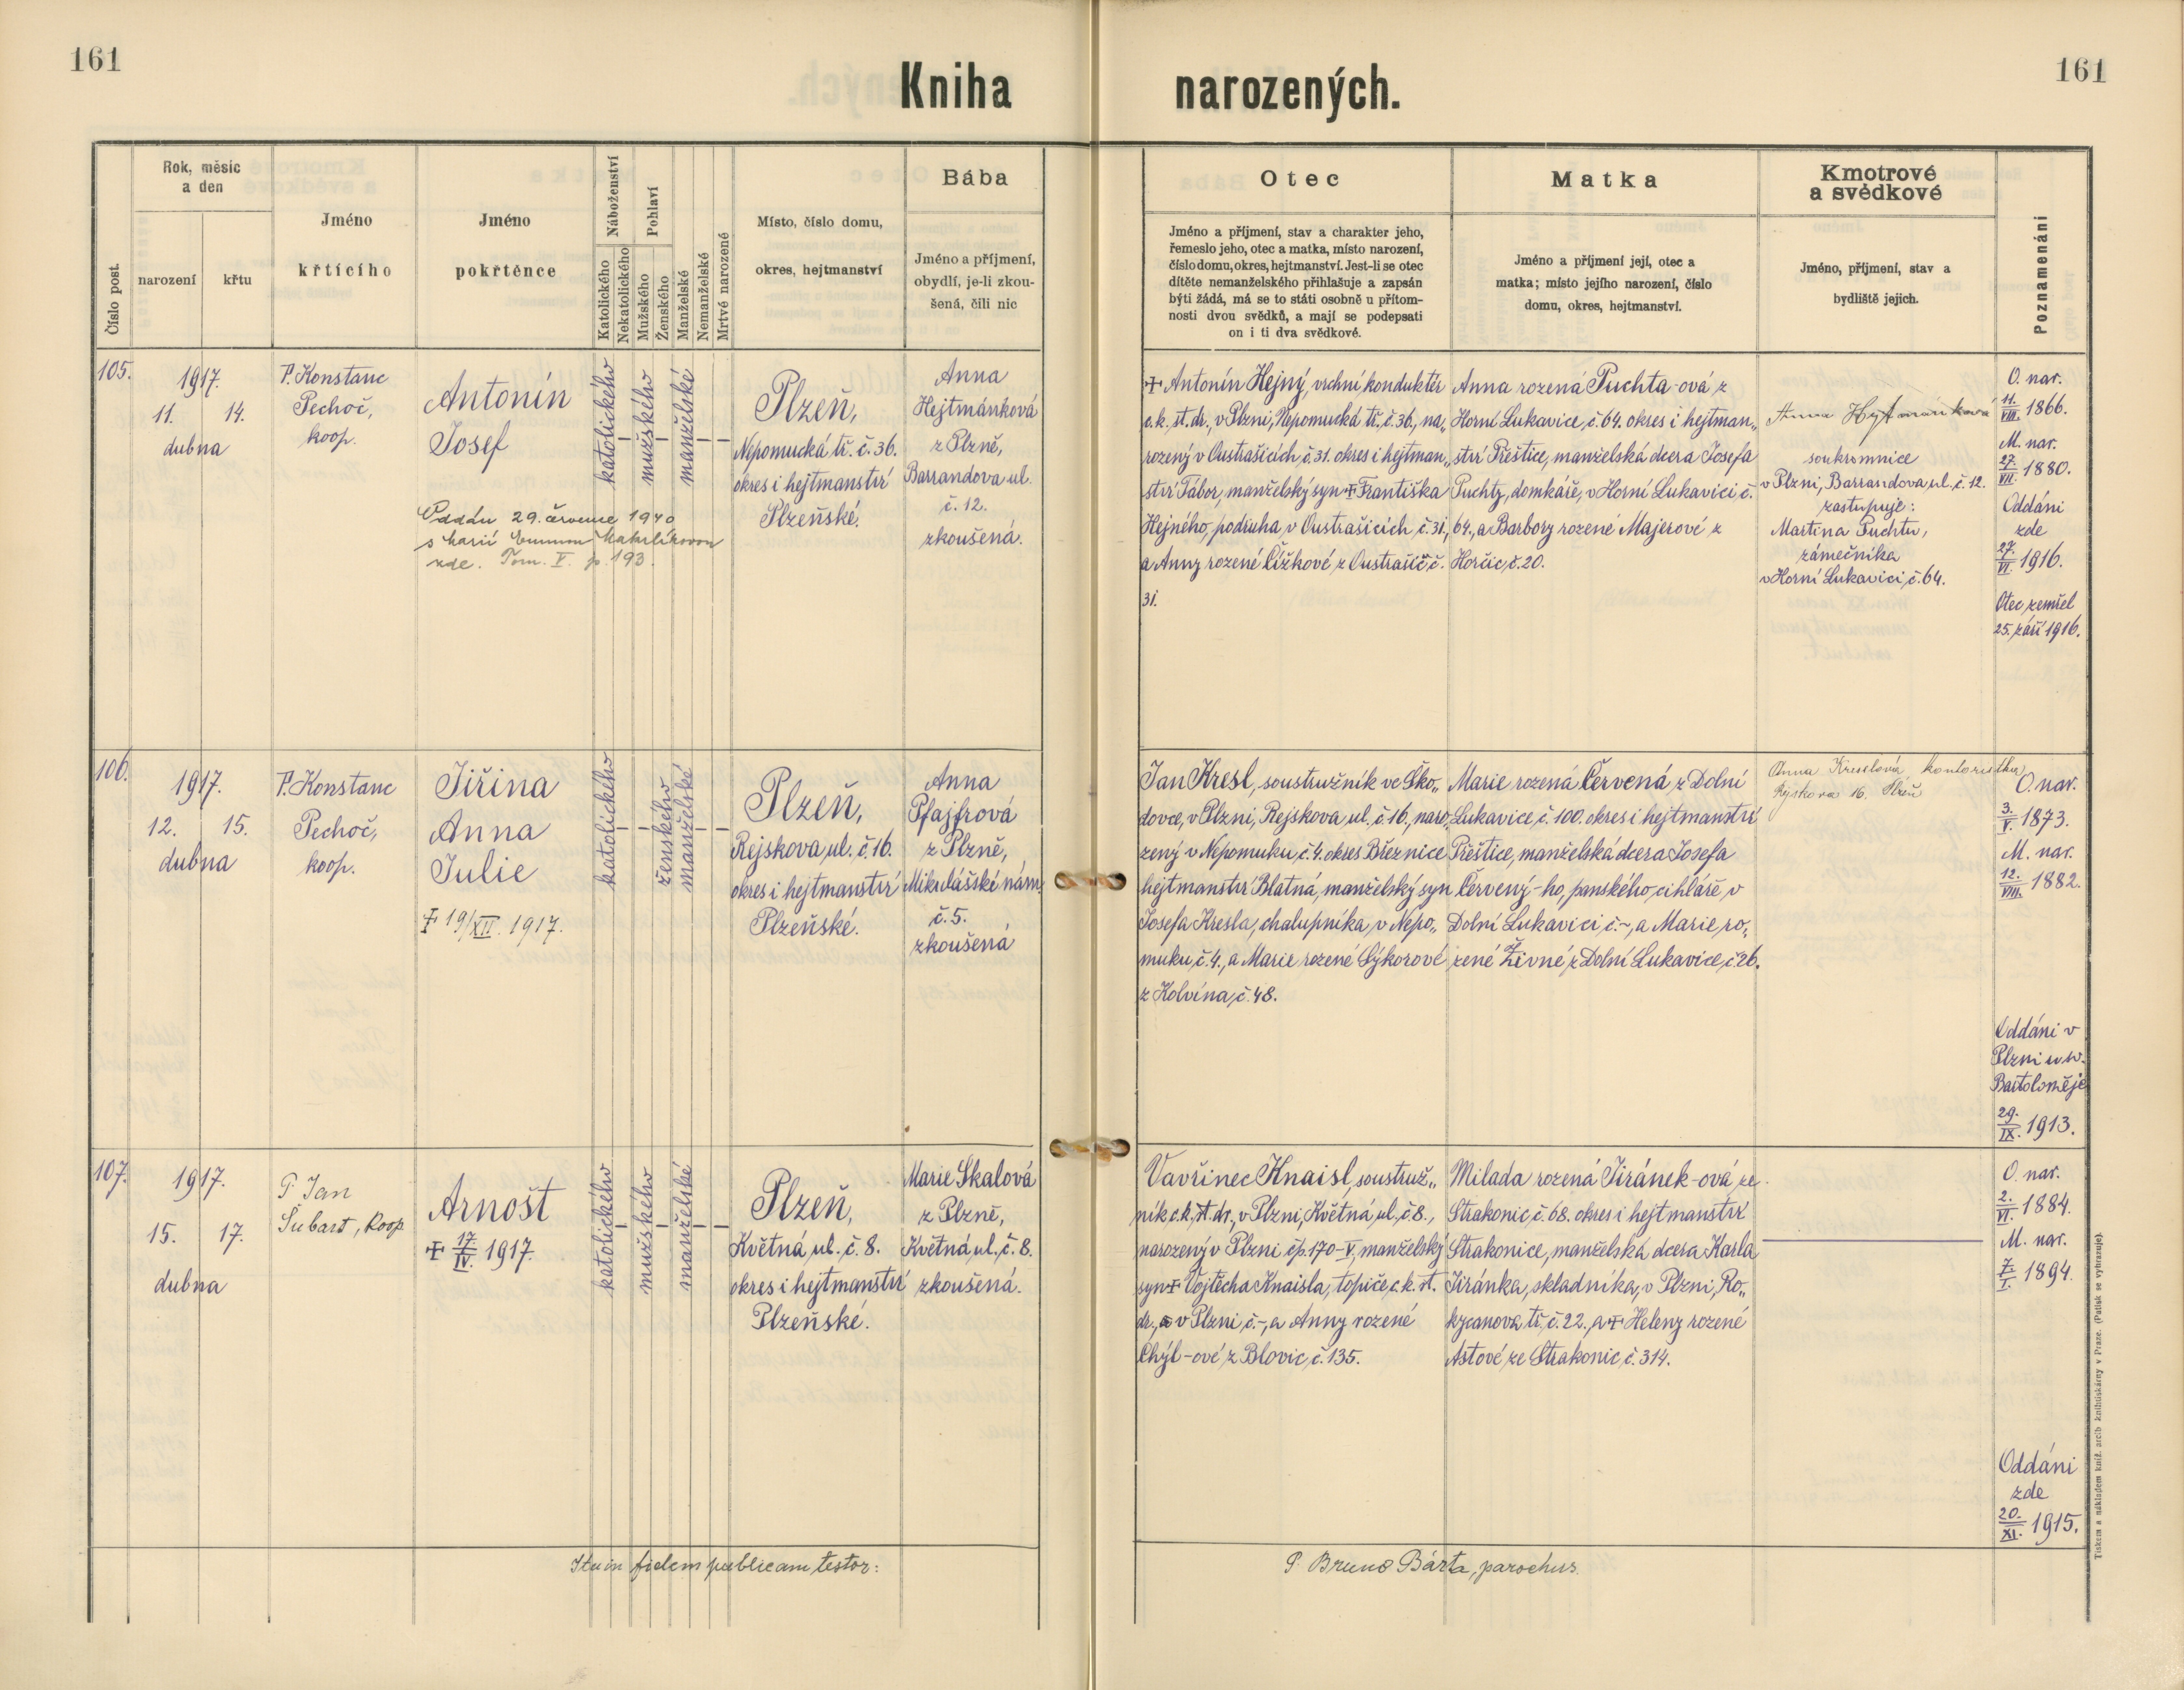 161
161
Kniha narozených.
Číslo post.
Rok, měsíc
a den
narození
křtu
Jméno
křtícího
Jméno
pokřtěnce
Náboženství
Katolického
Nekatolického
Pohlaví
Mužského
Ženského
Manželské
Nemanželské
Mrtvé narozené
Místo, číslo domu,
okres, hejtmanství
Bába
Jméno a příjmení,
obydlí, je-li zkou-
šená, čili nic
Otec
Jméno a příjmení, stav a charakter jeho,
řemeslo jeho, otec a matka, místo narození,
číslo domu, okres, hejtmanství. Jest-li se otec
dítěte nemanželského přihlašuje a zapsán
býti žádá, má se to státi osobně u přítom-
nosti dvou svědků, a mají se podepsati
on i ti dva svědkové.
Matka
Jméno a příjmení její, otec a
matka; místo jejího narození, číslo
domu, okres, hejtmanství.
Kmotrové
a svědkové
Jméno, příjmení, stav a
bydliště jejich.
Poznamenání
105.
1917.
11. 14.
dubna
P. Konstanc
Pechoč,
koop.
Antonín
Josef
Oddán 29. července 1940
s Marií
zde. Tom. V. p. 193.
katolického
mužského
manželské
Plzeň,
Nepomucká tř. č. 36.
okres i hejtmanství
Plzeňské.
Anna
Hejtmánková
z Plzně,
Barrandova ul.
č. 12.
zkoušená.
+ Antonín Hejný, vrchní konduktér
c.k. st. dr., v Plzni, Nepomucká tř., č. 36., na„
rozený v Oustrašicích, č. 31. okres i hejtman„
ství Tábor, manželský syn + Františka
Hejného, podruha v Oustrašicích č. 31.,
a Anny rozené Čížkové z Oustrašič č.
31.
Anna rozená Puchta-ová z
Horní Lukavice, č. 64. okres i hejtman„
ství Přeštice, manželská dcera Josefa
Puchty, domkáře, v Horní Lukavici č.
64., a Barbory rozené Majerové z
Horčic, č. 20.
Anna Hejtmánková
soukromnice
v Plzni, Barrandova ul. č. 12.
zastupuje:
Martina Puchtu,
zámečníka
v Horní Lukavici, č. 64.
O. nar.
11./VIII. 1866.
M. nar.
27./VII. 1880.
Oddáni
zde
27./VI. 1916.
Otec zemřel
25. září 1916.
106.
1917.
12. 15.
dubna
P. Konstanc
Pechoč,
koop.
Jiřina
Anna
Julie
+ 19/XII. 1917.
katolického
ženského
manželské
Plzeň,
Rejskova ul. č. 16.
okres i hejtmanství
Plzeňské.
Anna
Pfajfrová
z Plzně,
Mikulášské nám.
č. 5.
zkoušená
Jan Kresl, soustružník ve Ško„
dovce, v Plzni, Rejskova ul. č. 16., naro„
zený v Nepomuku, č. 4. okres Březnice
hejtmanství Blatná, manželský syn
Josefa Kresla, chalupníka, v Nepo„
muku, č. 4., a Marie rozené Sýkorové
z Kolvína, č. 48.
Marie rozená Červená z Dolní
Lukavice, č. 100. okres i hejtmanství
Přeštice, manželská dcera Josefa
Červený-ho, panského cihláře, v
Dolní Lukavici č.-, a Marie ro„
zené Živné z Dolní Lukavice, č. 26.
Anna Kreslová kontoristka
Rejskova 16. Plzeň
O. nar.
3./V. 1873.
M. nar.
12./VIII. 1882.
Oddáni v
Plzni u sv.
Bartoloměje
29./IX. 1913.
107.
1917.
15. 17.
dubna
P. Jan
Šubart, koop
Arnošt
+ 17/IV. 1917.
katolického
mužského
manželské
Plzeň,
Květná ul. č. 8.
okres i hejtmanství
Plzeňské.
Marie Skalová
z Plzně,
Květná ul., č. 8.
zkoušená.
Vavřinec Knaisl, soustruž„
ník c.k. st. dr., v Plzni, Květná ul., č. 8.,
narozený v Plzni čp. 170-V, manželský
syn + Vojtěcha Knaisla, topiče c.k. st.
dr., v Plzni č.-, a Anny rozené
Chýl-ové, z Blovic, č. 135.
Milada rozená Jiránek-ová ze
Strakonic, č. 68. okres i hejtmanství
Strakonice, manželská dcera Karla
Jiránka, skladníka, v Plzni, Ro„
kycanova tř. č. 22., a + Heleny rozené
Astové ze Strakonic, č. 314.
O. nar.
2./VI. 1884.
M. nar.
7./I. 1894.
Oddáni
zde
20./XI. 1915.
Ita in fidem publicam testor:
P. Bruno Bárta, parochus.
Tiskem a nákladem kníž. arcib. knihtiskárny v Praze. (Patisk se vyhrazuje).